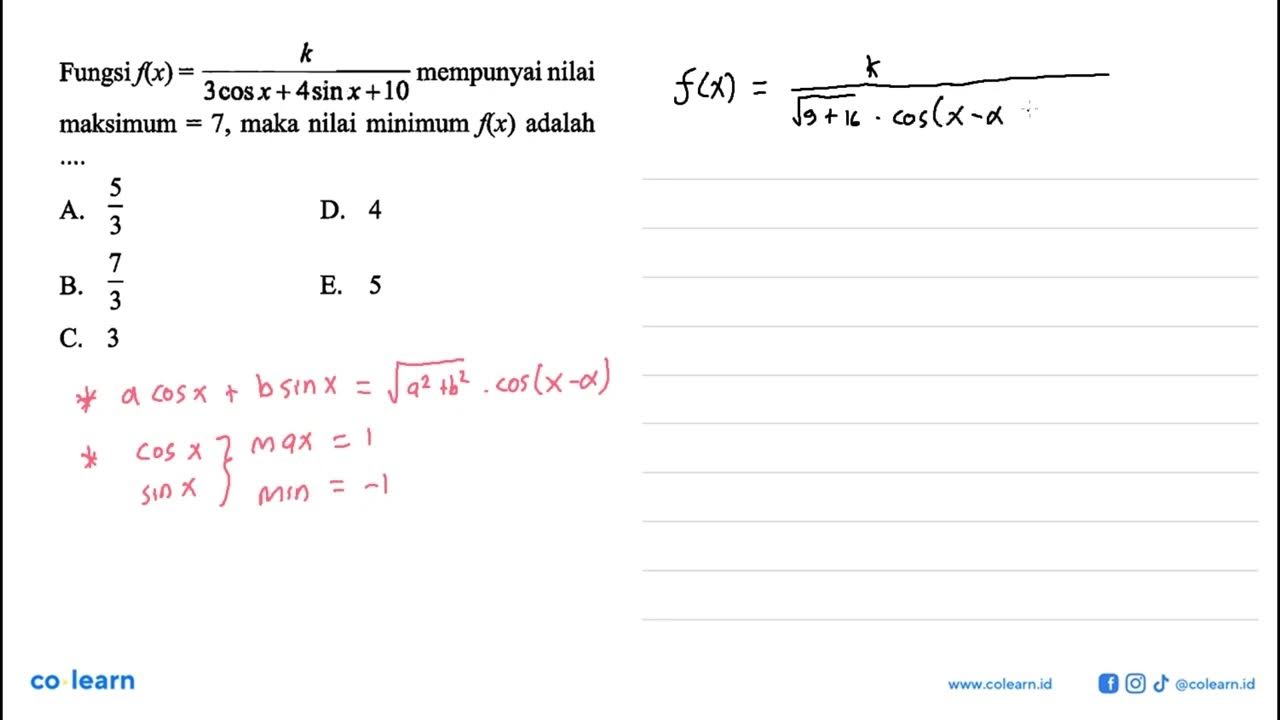 Fungsi f(x) = k / (3 cos x + 4 sin x + 10) mempunyai nilai
maksimum = 7, maka nilai minimum f(x) adalah
....
A. 5/3 D. 4
B. 7/3 E. 5
C. 3
* a cos x + b sin x = √(a² + b²) . cos(x-α)
* cos x } max = 1
sin x } min = -1
f(x) = k / √9+16 . cos(x-α
co·learn
www.colearn.id @colearn.id